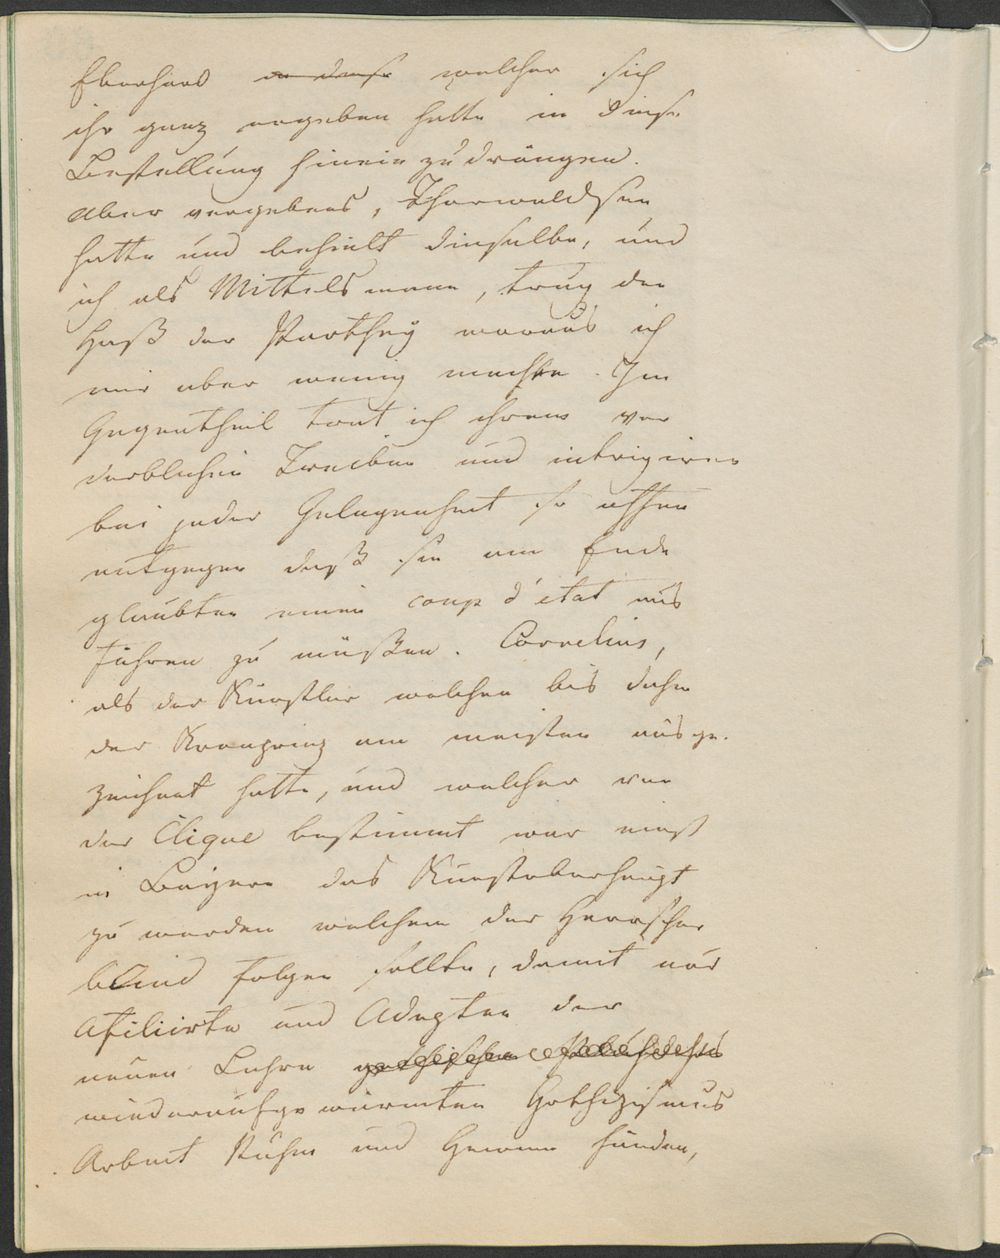 Eberhard welcher sich
ihr ganz ergeben hatte in diese
Bestellung hinein zu drängen.
Aber vergebens, Thorwaldsen
hatte und behielt dieselbe, und
ich als Mittelsmann, trug den
Haß der Parthey woraus ich
mir aber wenig machte. Im
Gegentheil trat ich ihrem ver
derblichen Treiben und intrigiren
bei jeder Gelegenheit so offen
entgegen daß sie am Ende
glaubten einen coup d'etat aus
führen zu müßen. Cornelius,
als der Künstler welchen bis dahin
der Kronprinz am meisten ausge-
zeichnet hatte, und welcher von
der Clique bestimmt war einst
in Baiern das Kunstoberhaupt
zu werden welchem der Herrscher
blind folgen sollte, damit nur
Afiliirte und Adepten der
neuen Lehre
wiederaufgewärmten Gothizismus
Arbeit Ruhm und Gewinn fänden,